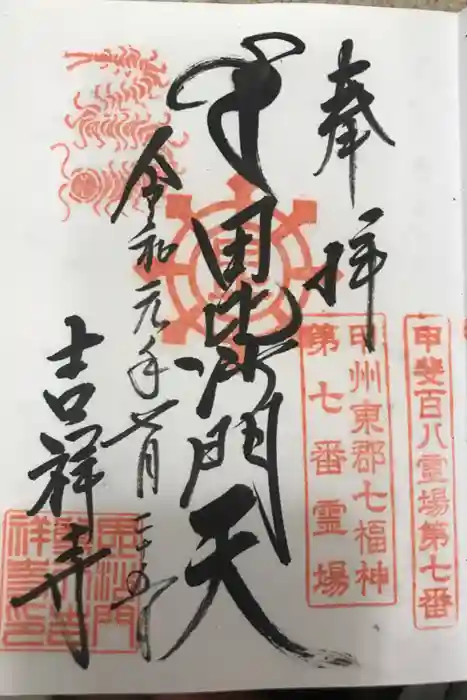 甲斐百八霊場第七番
甲州東郡七福神
第七番霊場
奉拝
毘沙門天
令和元年七月二十五日
吉祥寺